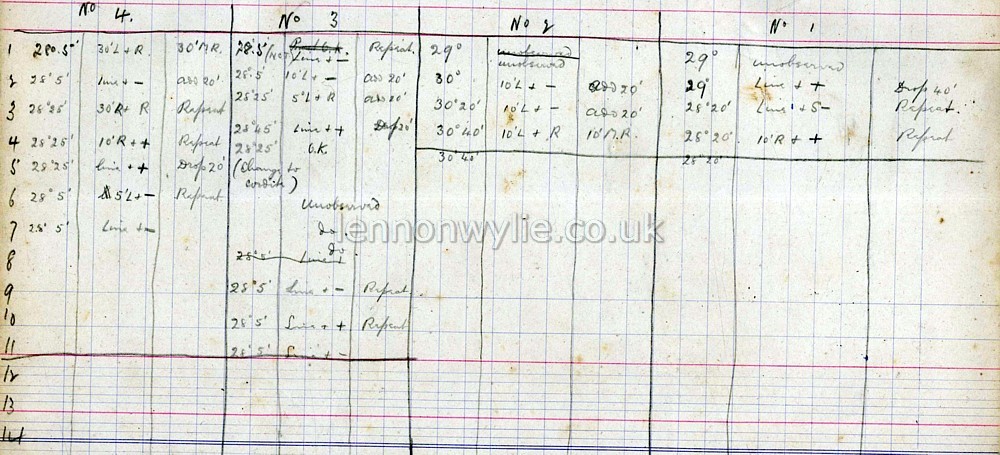 No 4. No 3 No 2 No 1
1 28°.5' 30'L + R 30'M.R. 28°.5' Line + - Repeat. 29° unobserved 29° unobserved
unobserved
2 28°5' line + - add 20' 28°5 10'L + - add 20' 30° 10'L + - add 20' 29° Line + + Drop 40'
3 28°25' 30'R + R Repeat 28°25' 5'L + R add 20' 30°20' 10'L + - add 20' 28°20' Line + - Repeat.
4 28°25' 10'R + + Repeat 28°45' Line + + Drop 20' 30°40' 10'L + R 10'M.R. 28°20' 10'R + + Repeat
28°25' O.K. 30°40' 28°20'
5 28°25' line + + Drop 20' (Change to
cordite)
6 28°5' 5'L + - Repeat
unobserved
7 28°5' Line + - do
do
8 28°5' Line
9 28°5' Line + - Repeat.
10 28°5' Line + + Repeat
11 28°5' Line + -
12
13
14
lennonwylie.co.uk